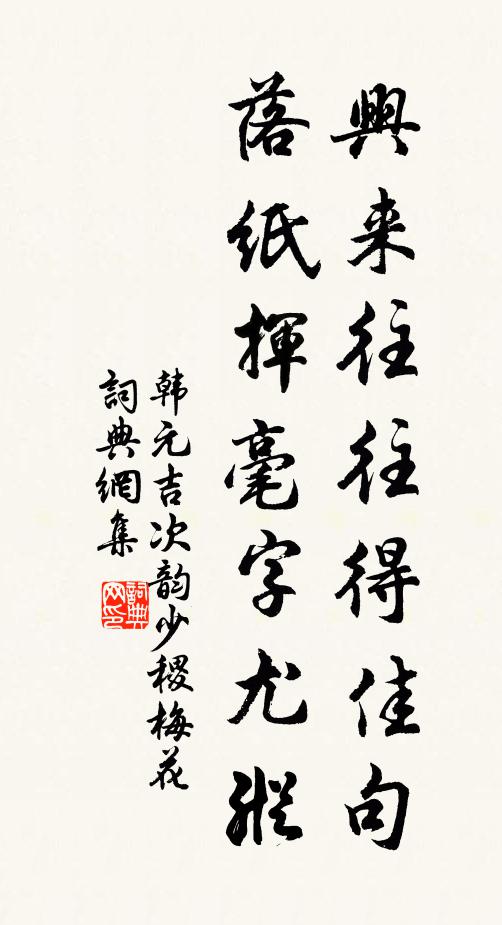 興来往往得佳句
落紙揮毫字尤縱
韩元吉次韵少稷梅花
詞典網集
詞典网印